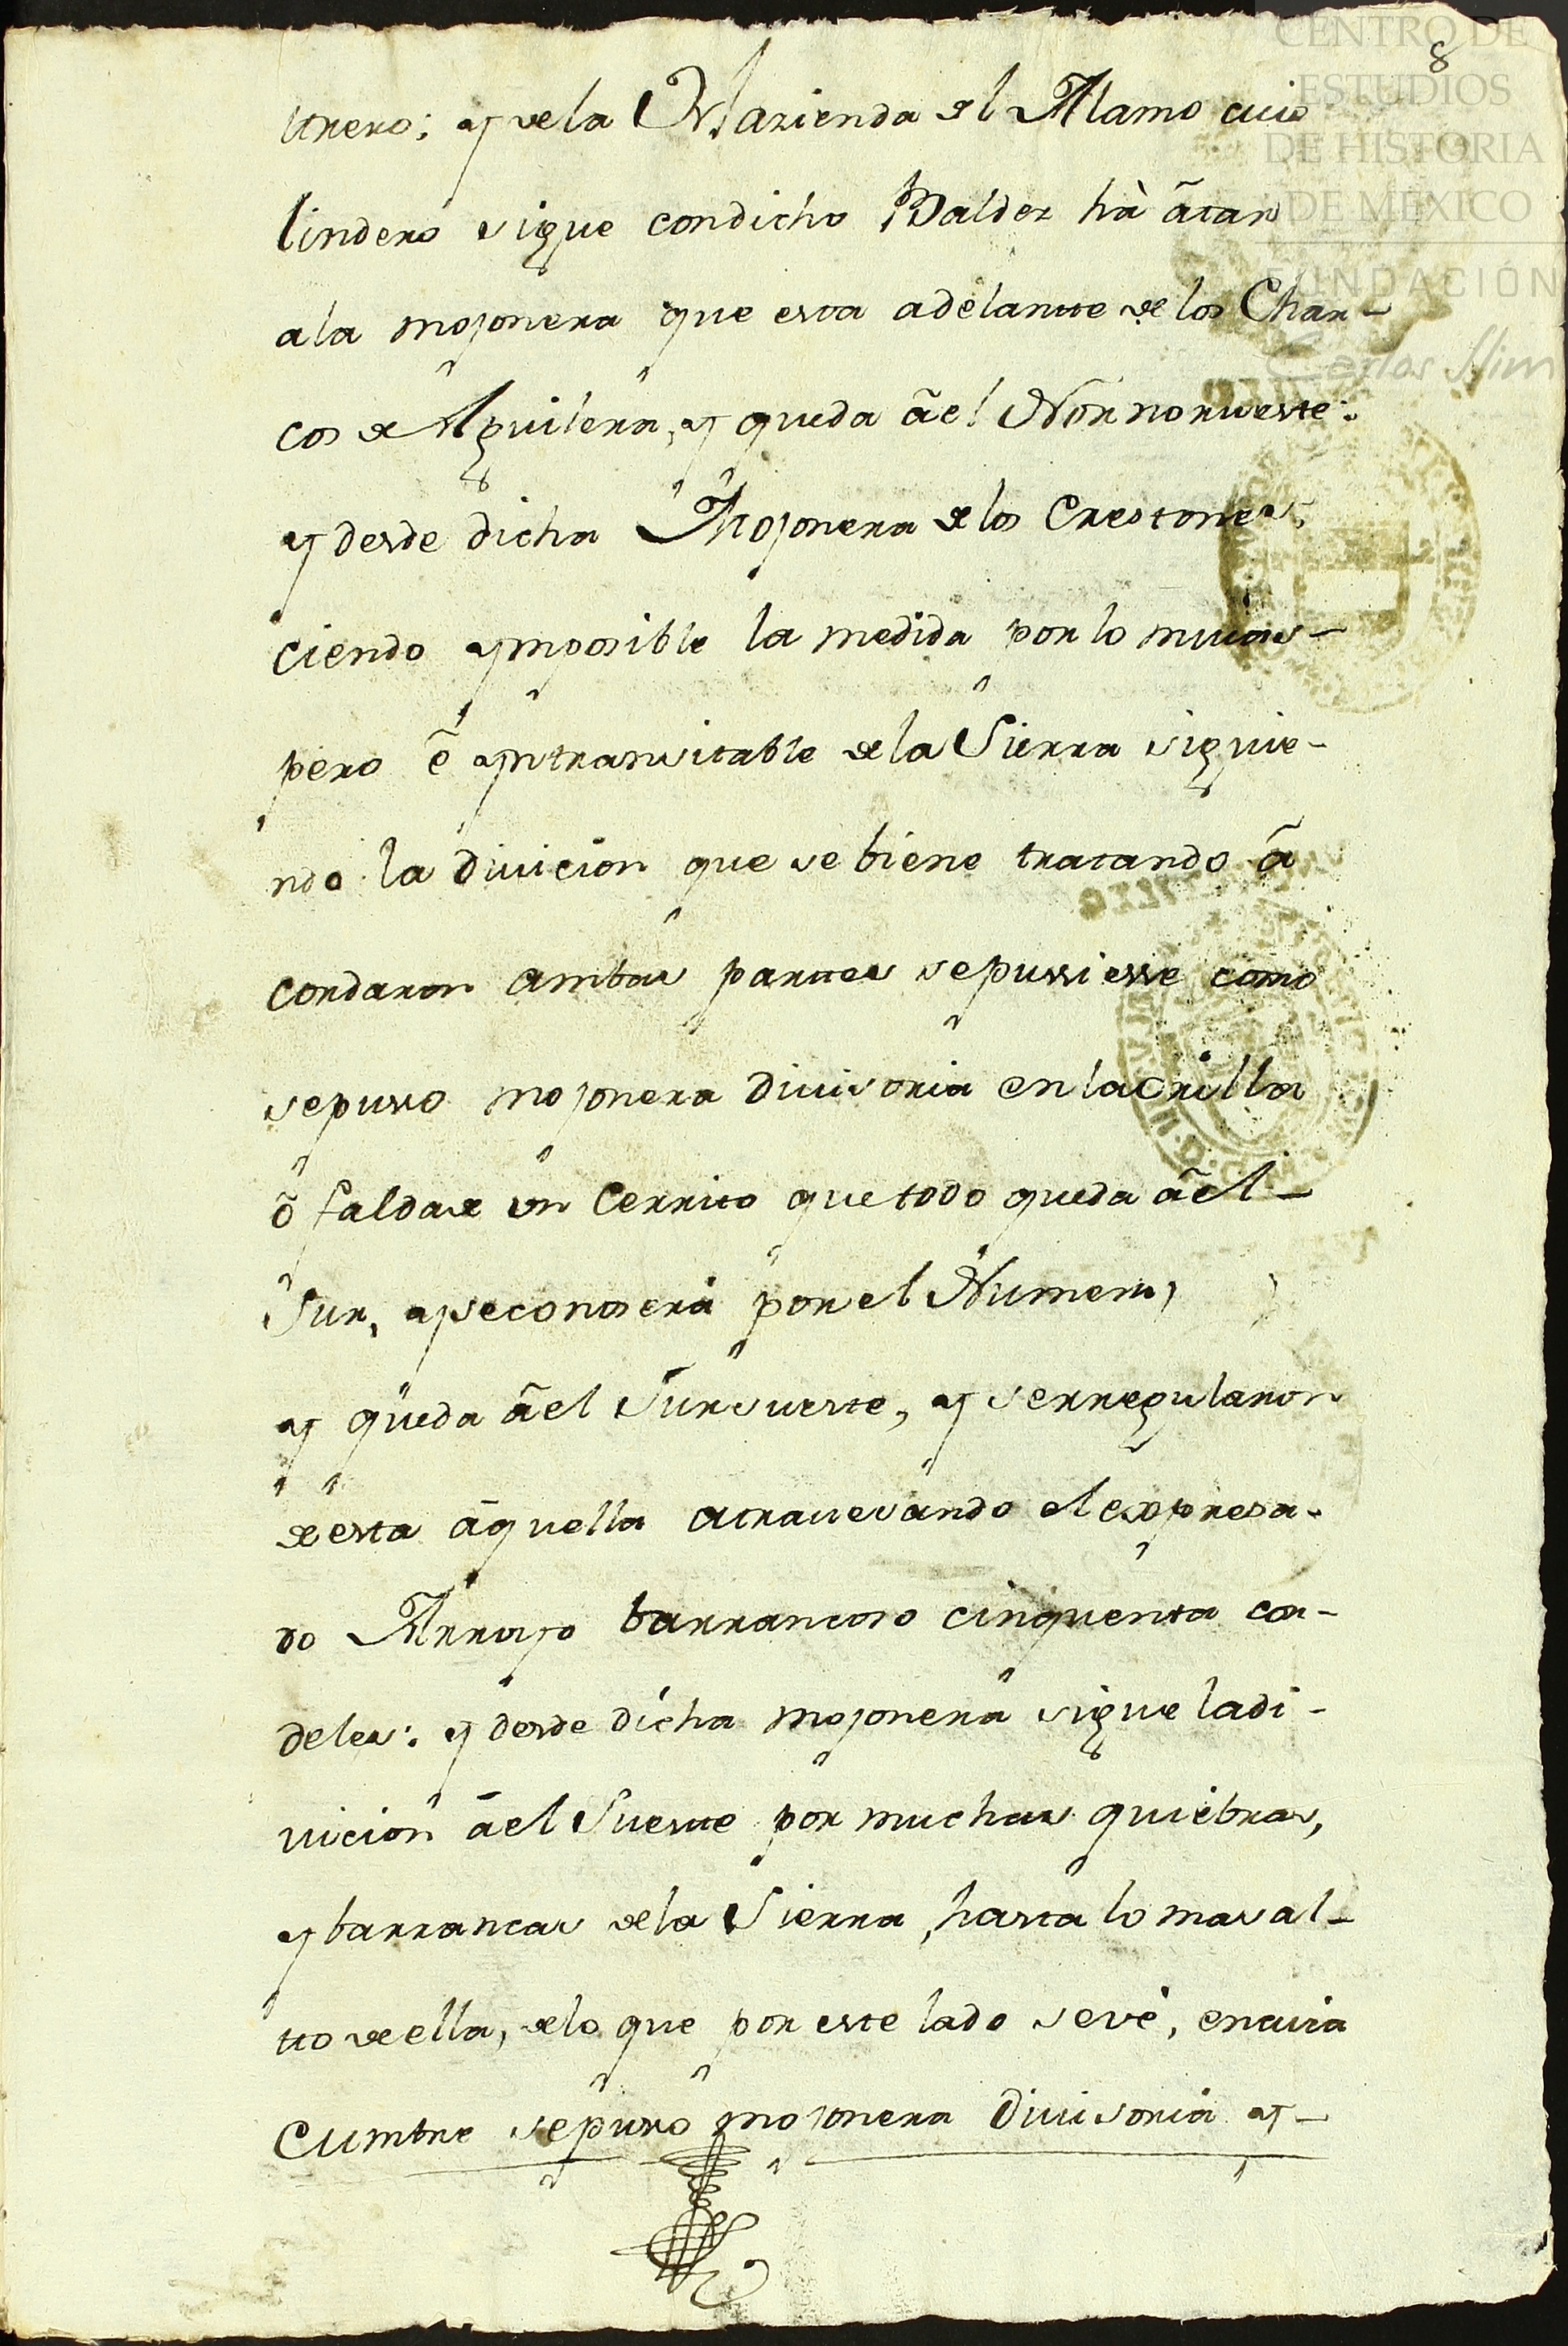 CENTRO DE
ESTUDIOS
DE HISTORIA
DE MÉXICO
FUNDACIÓN
Carlos Slim
8
ttrero; y de la Hazienda del Alamo cuio
lindero sigue condicho Baldez hà ãtar
ala mojonera que esta adelantte de los Char-
cos de Aguilera, y queda ãel Nornorueste:
y desde dicha Mojonera de los Crestones,
ciendo ymposible la medida por lo muias-
pero ẽ yntransitable dela Sierra siguie-
ndo la diuicion que se biene tratando ã
cordaron ambas parttes sepussiesse como
sepusso mojonera diuisoria enlaorilla
õ faldade un Cerrito quetodo queda ãel-
Sur, yseconoserà porel Numero,
y queda ãel Sursueste, y serregularon
de esta ãquella atrauesando elexpresa-
do Arroyo barrancoso cinquenta cor-
deles: y desde dicha mojonera sigue ladi-
uicion ãel Sueste por muchas quiebras,
ybarrancas dela Sierra, hasta lo mas al-
tto deella, delo que por este lado sevè, encuia
Cumbre sepusso mojonera Diuisoria y-